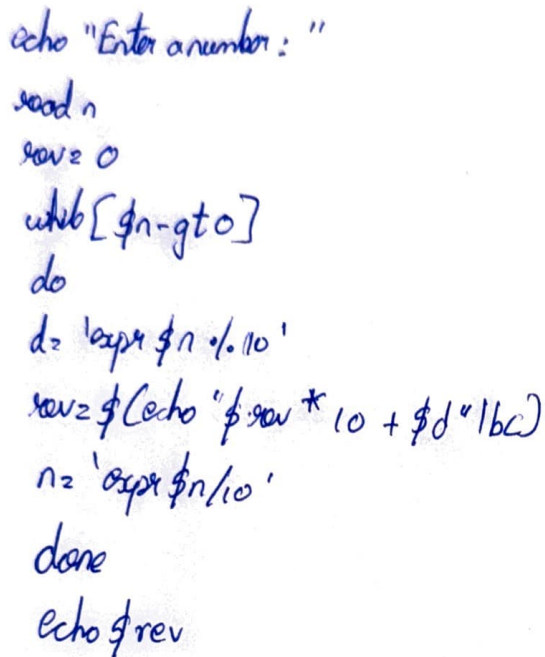 echo "Enter a number: "
read n
rev= 0
while [ $n -gt 0 ]
do
d= 'expr $n % 10'
rev= $(echo "$rev * 10 + $d" | bc)
n= 'expr $n / 10'
done
echo $rev